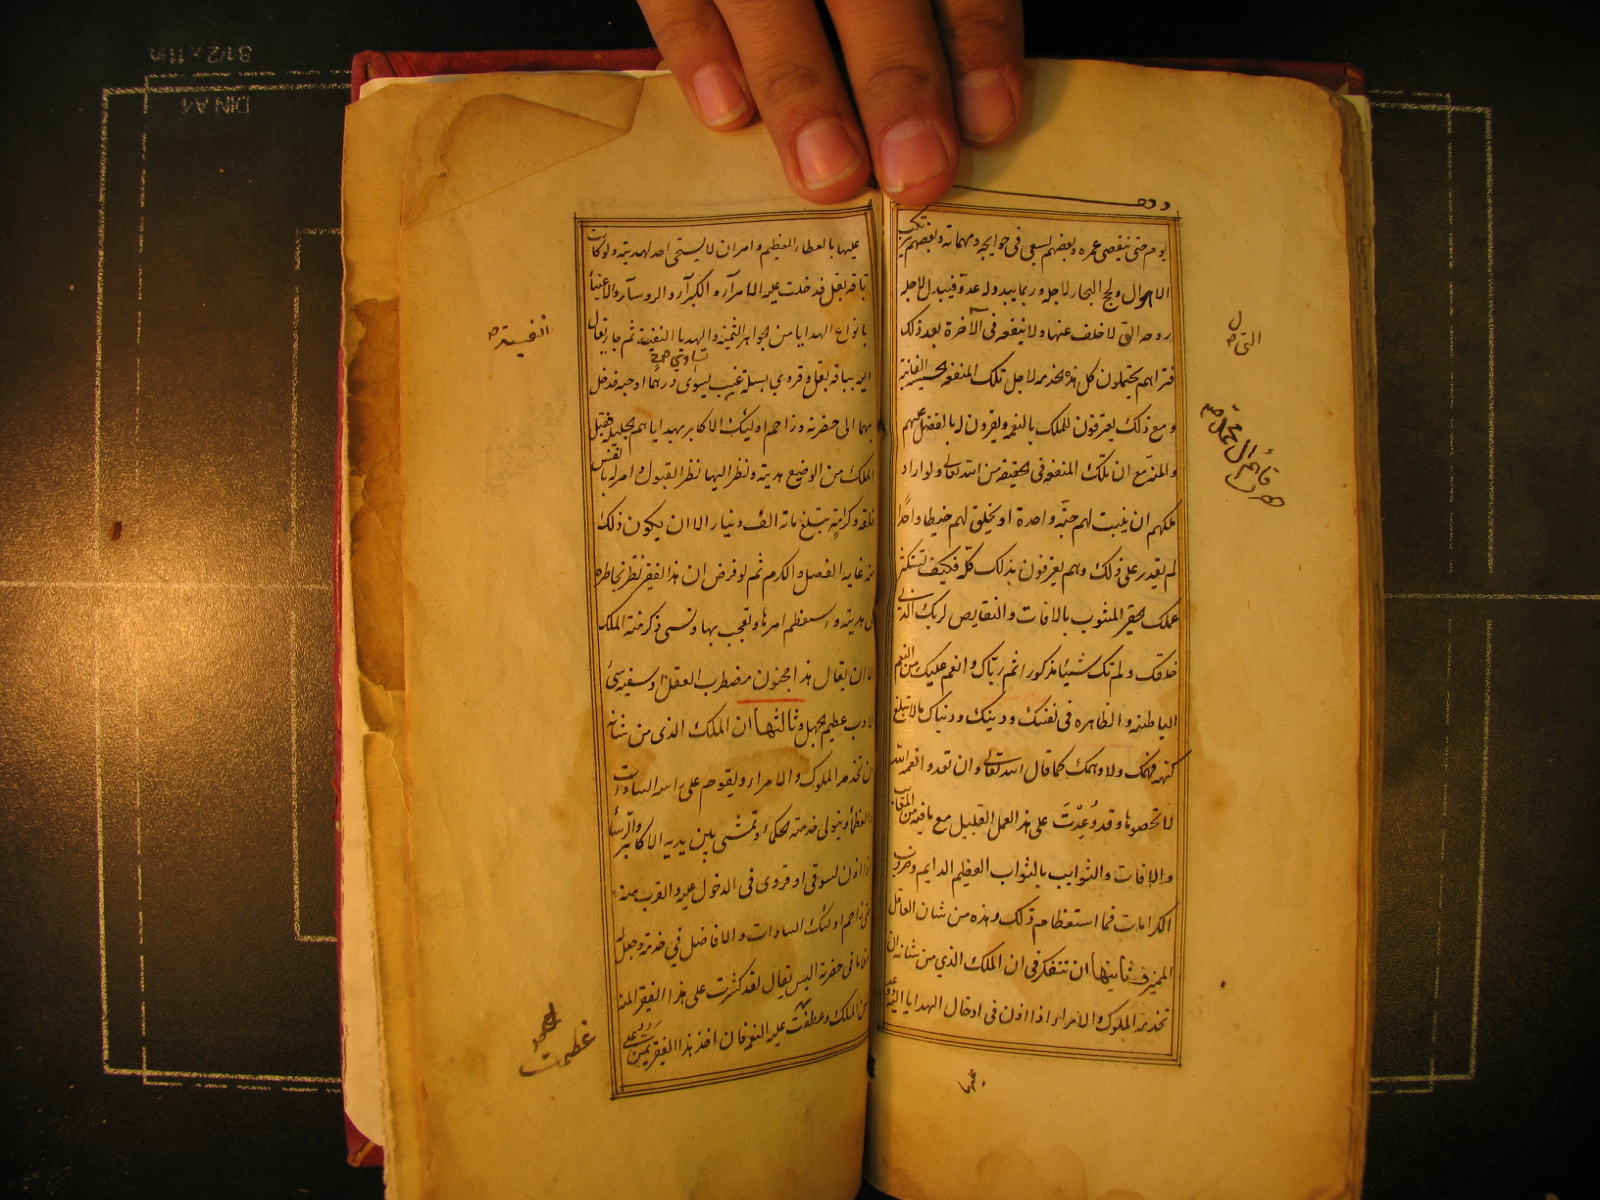 يوم حتى ينقضى عمره وبعضهم يسعى فى حوايجه ومهماته وبعضهم يرتكب
الاهوال ولجج البحار لاجله وربما يبدو له عدو فيبذل لاجله
روحه التى لا خلف عنها ولا ينفعه فى الآخرة بعد ذلك
فتراهم يحتملون كل هذه الخدمة لاجل تلك المنفعة الخسيسة الفانية
ومع ذلك يعرفون للملك بالنعمة ويقرون له بالفضل عليهم
والمنة مع ان تلك المنفعة فى الحقيقة من الله تعالى ولو اراد
ملكهم ان ينبت لهم حبّة واحدة او يخلق لهم خيطا واحدًا
لم يقدر على ذلك وهم يعرفون بذلك كلّه فكيف تستكثر
عملك الحقير المشوب بالافات والنقايص لربك الذى
خلقك ولم تك شيئا مذكورا ثم ربّاك وانعم عليك من النعم
الباطنة والظاهرة فى نفسك ودينك ودنياك ما لا تبلغ
كنهه فهمك ولا وهمك كما قال الله تعالى وان تعدوا نعمة الله
لا تحصوها وقد وُعِدْتَ على هذا العمل القليل مع ما فيه من المعايب
والافات والشوايب بالثواب العظيم الدايم وضروب
الكرامات فما استعظام ذلك وهذه من شان العاقل
المميز وثانيها ان تتفكر فى ان الملك الذي من شانه ان
تخدمه الملوك والامراء اذا اذن فى ادخال الهدايا اليه ووعد
عليها
التى ص
عليها بالعطاء العظيم وامر ان لا يستحى احد لهديته ولو كانت
باقة بقل فدخلت عليه الامرآء والكبرآء والروسآء والاغنيا
بانواع الهدايا من الجواهر الثمينة والهدايا النفيسة ثم جاء بقال
اليه بباقة بقل وقروي بسلة عنب يسوى درهما او حبة فدخل
تساوى
بهما الى حضرته وزاحم اولئك الاكابر بهداياهم الجليلة فقبل
الملك من الوضيع هديته ونظر اليها نظر القبول وامر له بانفس
خلعة وكرامة تبلغ ماتة الف دينار الا ان يكون ذلك
من غاية الفضل والكرم ثم لو فرض ان هذا الفقير نظر بخاطره
الى هديته واستعظم امرها وتعجب بها ونسى ذكر منّة الملك
الا ان يقال هذا مجنون مضطرب العقل او سفيه سىء
الادب عظيم الجهل وثالثها ان الملك الذى من شانه
ان تخدمه الملوك والامراء ويقوم على راسه السادات
والعظمأ ويتولى خدمته الحكمأ وتمشى بين يديه الاكابر والرؤسا
اذا اذن لسوقى او قروى فى الدخول عليه والقرب منه
حتى زاحم اولئك السادات والافاضل في خدمته وجعل له
مقاما فى حضرته اليس يقال لقد كثرت على هذا الفقير المنة
من الملك وعظمت عليه النعمة فان اخذ هذا الفقير يَمُنّ على
النفيسة ص
عظمت